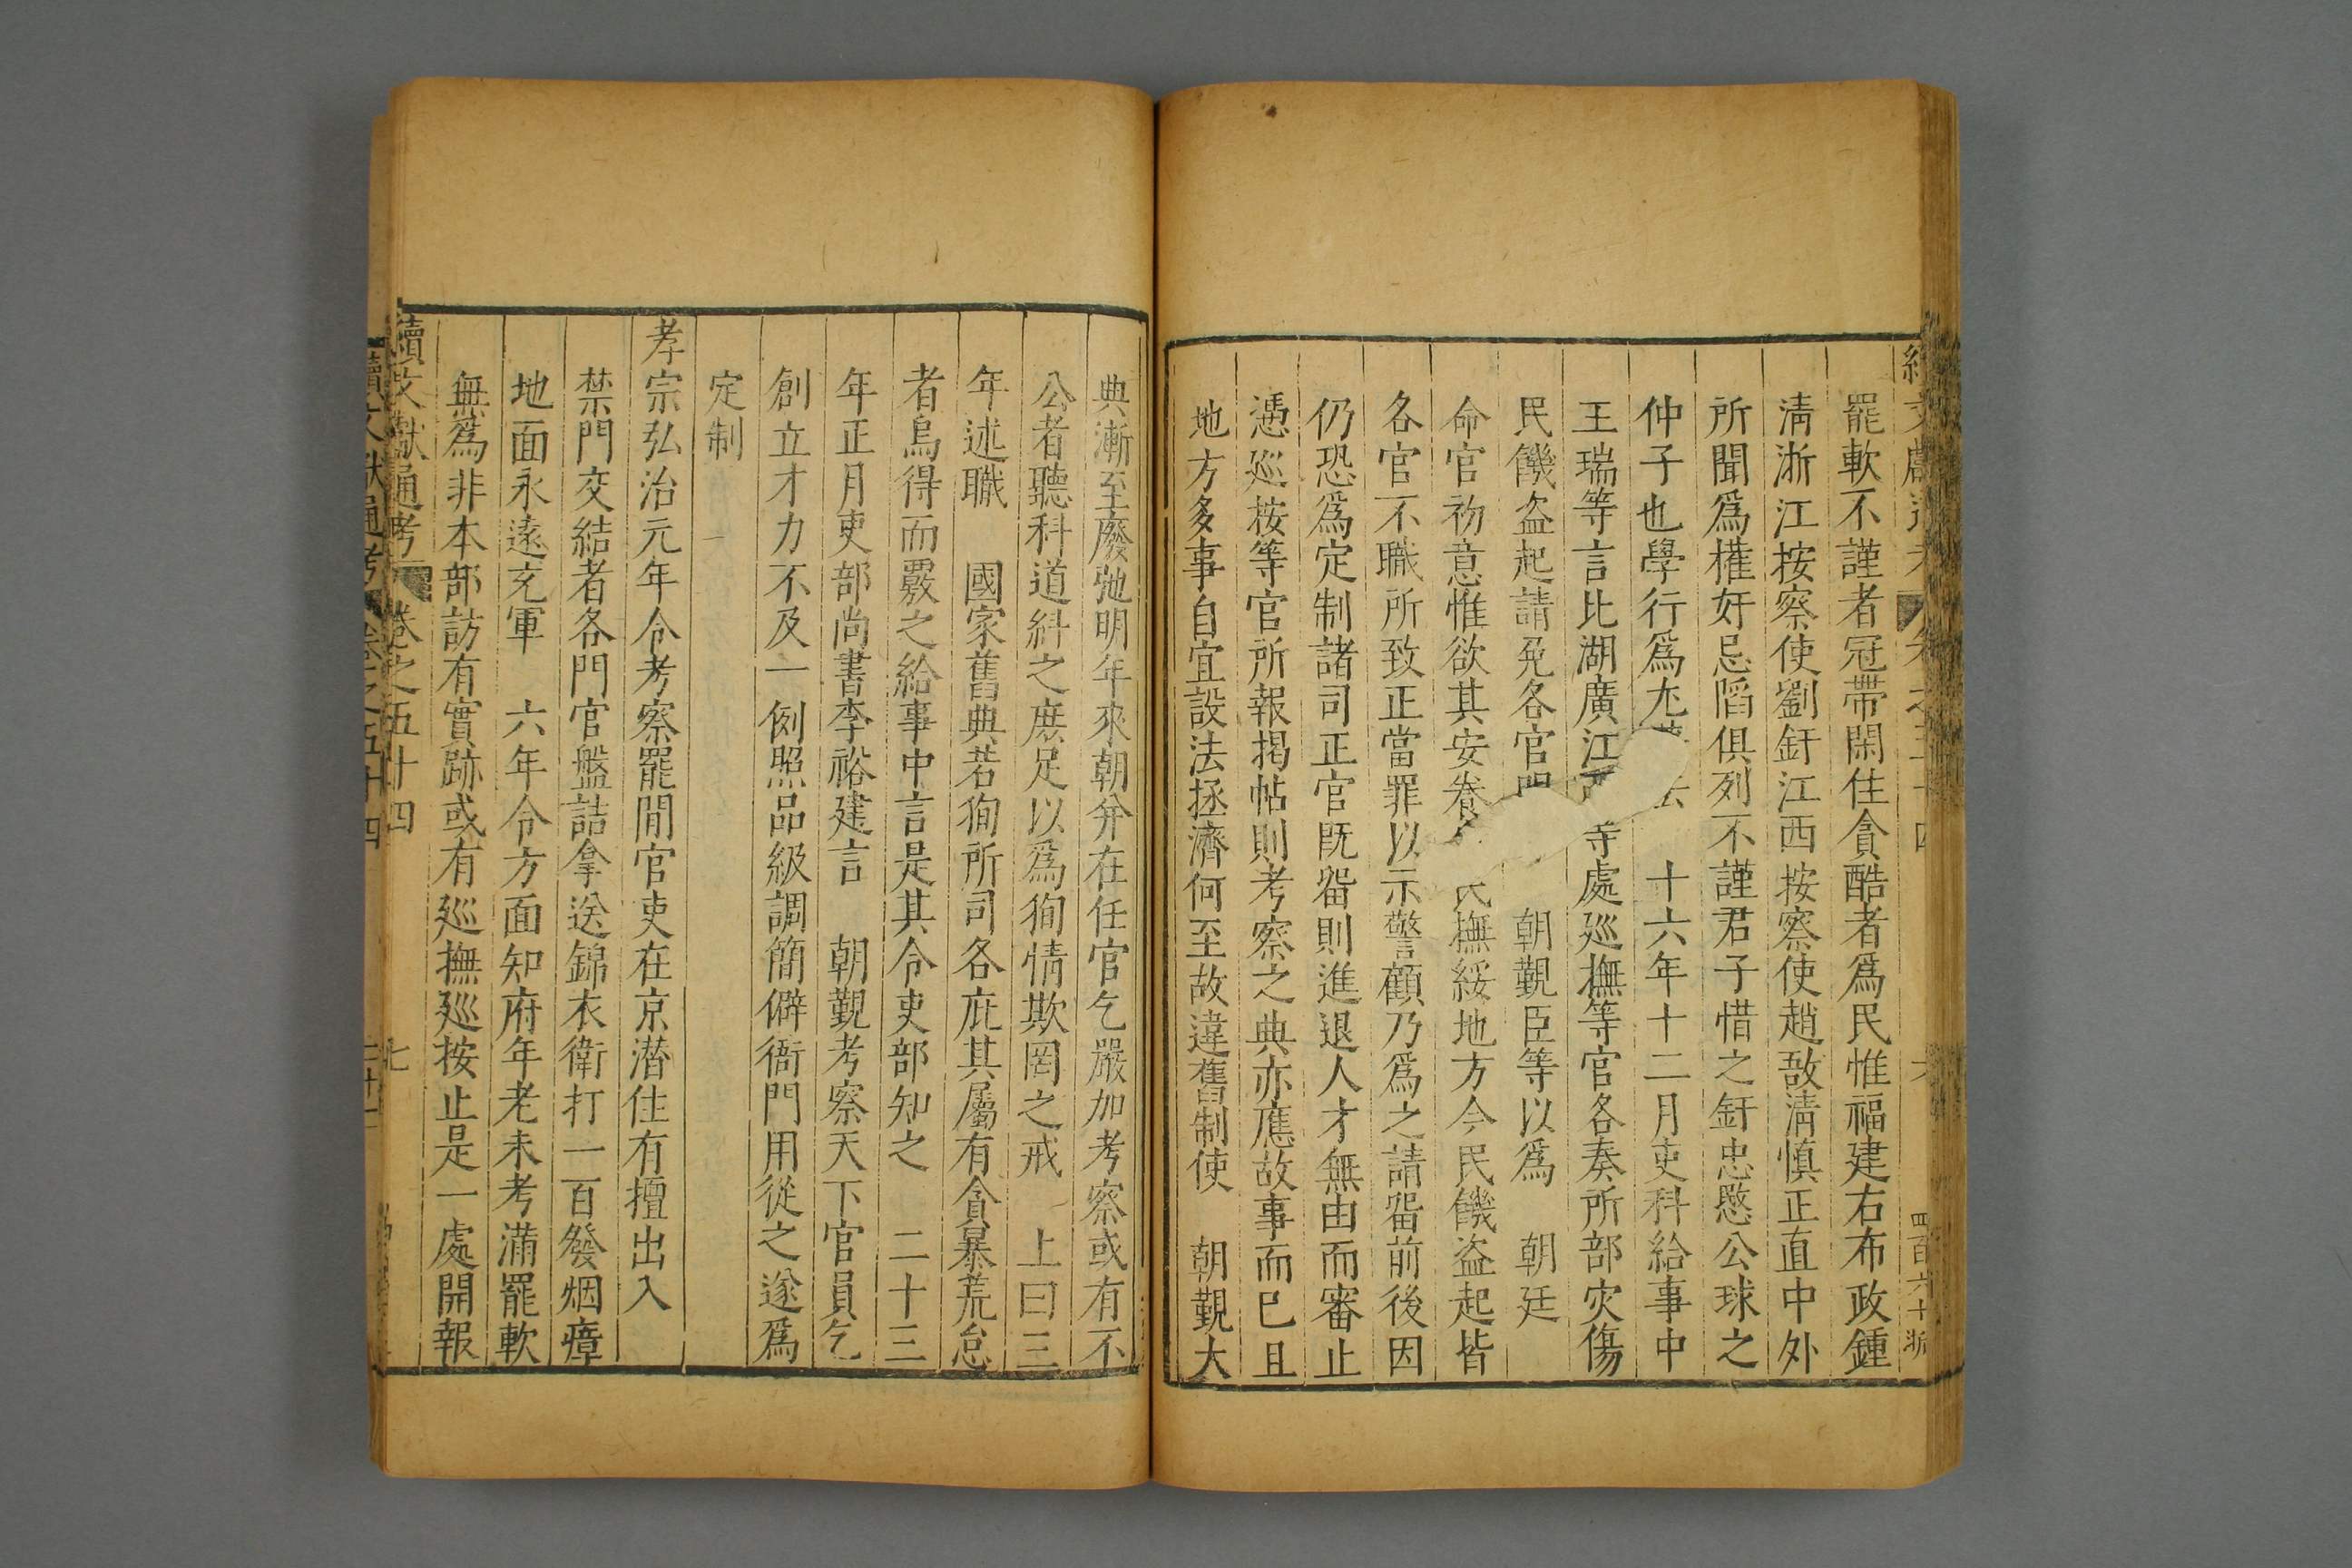 罷軟不謹者冠帶閑住貪酷者爲民惟福建右布政鍾
清浙江按察使劉釪江西按察使趙敔清慎正直中外
所聞爲權奸忌陷俱列不謹君子惜之釪忠愍公球之
仲子也學行爲尤 十六年十二月吏科給事中
王瑞等言比湖廣江 等處巡撫等官各奏所部灾傷
民饑盗起請免各官 朝覲臣等以爲 朝廷
命官初意惟欲其安養 民撫綏地方今民饑盗起皆
各官不職所致正當罪以示警顧乃爲之請畱前後因
仍恐爲定制諸司正官既畱則進退人才無由而審止
憑巡按等官所報揭帖則考察之典亦應故事而已且
地方多事自宜設法拯濟何至故違舊制使 朝覲大
典漸至廢弛明年來朝并在任官乞嚴加考察或有不
公者聽科道糾之庶足以爲狥情欺罔之戒 上曰三
年述職 國家舊典若狥所司各庇其屬有貪暴荒怠
者烏得而覈之給事中言是其令吏部知之 二十三
年正月吏部尚書李裕建言 朝覲考察天下官員乞
創立才力不及一例照品級調簡僻衙門用從之遂爲
定制
孝宗弘治元年令考察罷閒官吏在京潜住有擅出入
禁門交結者各門官盤詰拿送錦衣衛打一百發烟瘴
地面永遠充軍 六年令方面知府年老未考滿罷軟
無爲非本部訪有實跡或有巡撫巡按止是一處開報
續文獻通考 卷之五十四 七